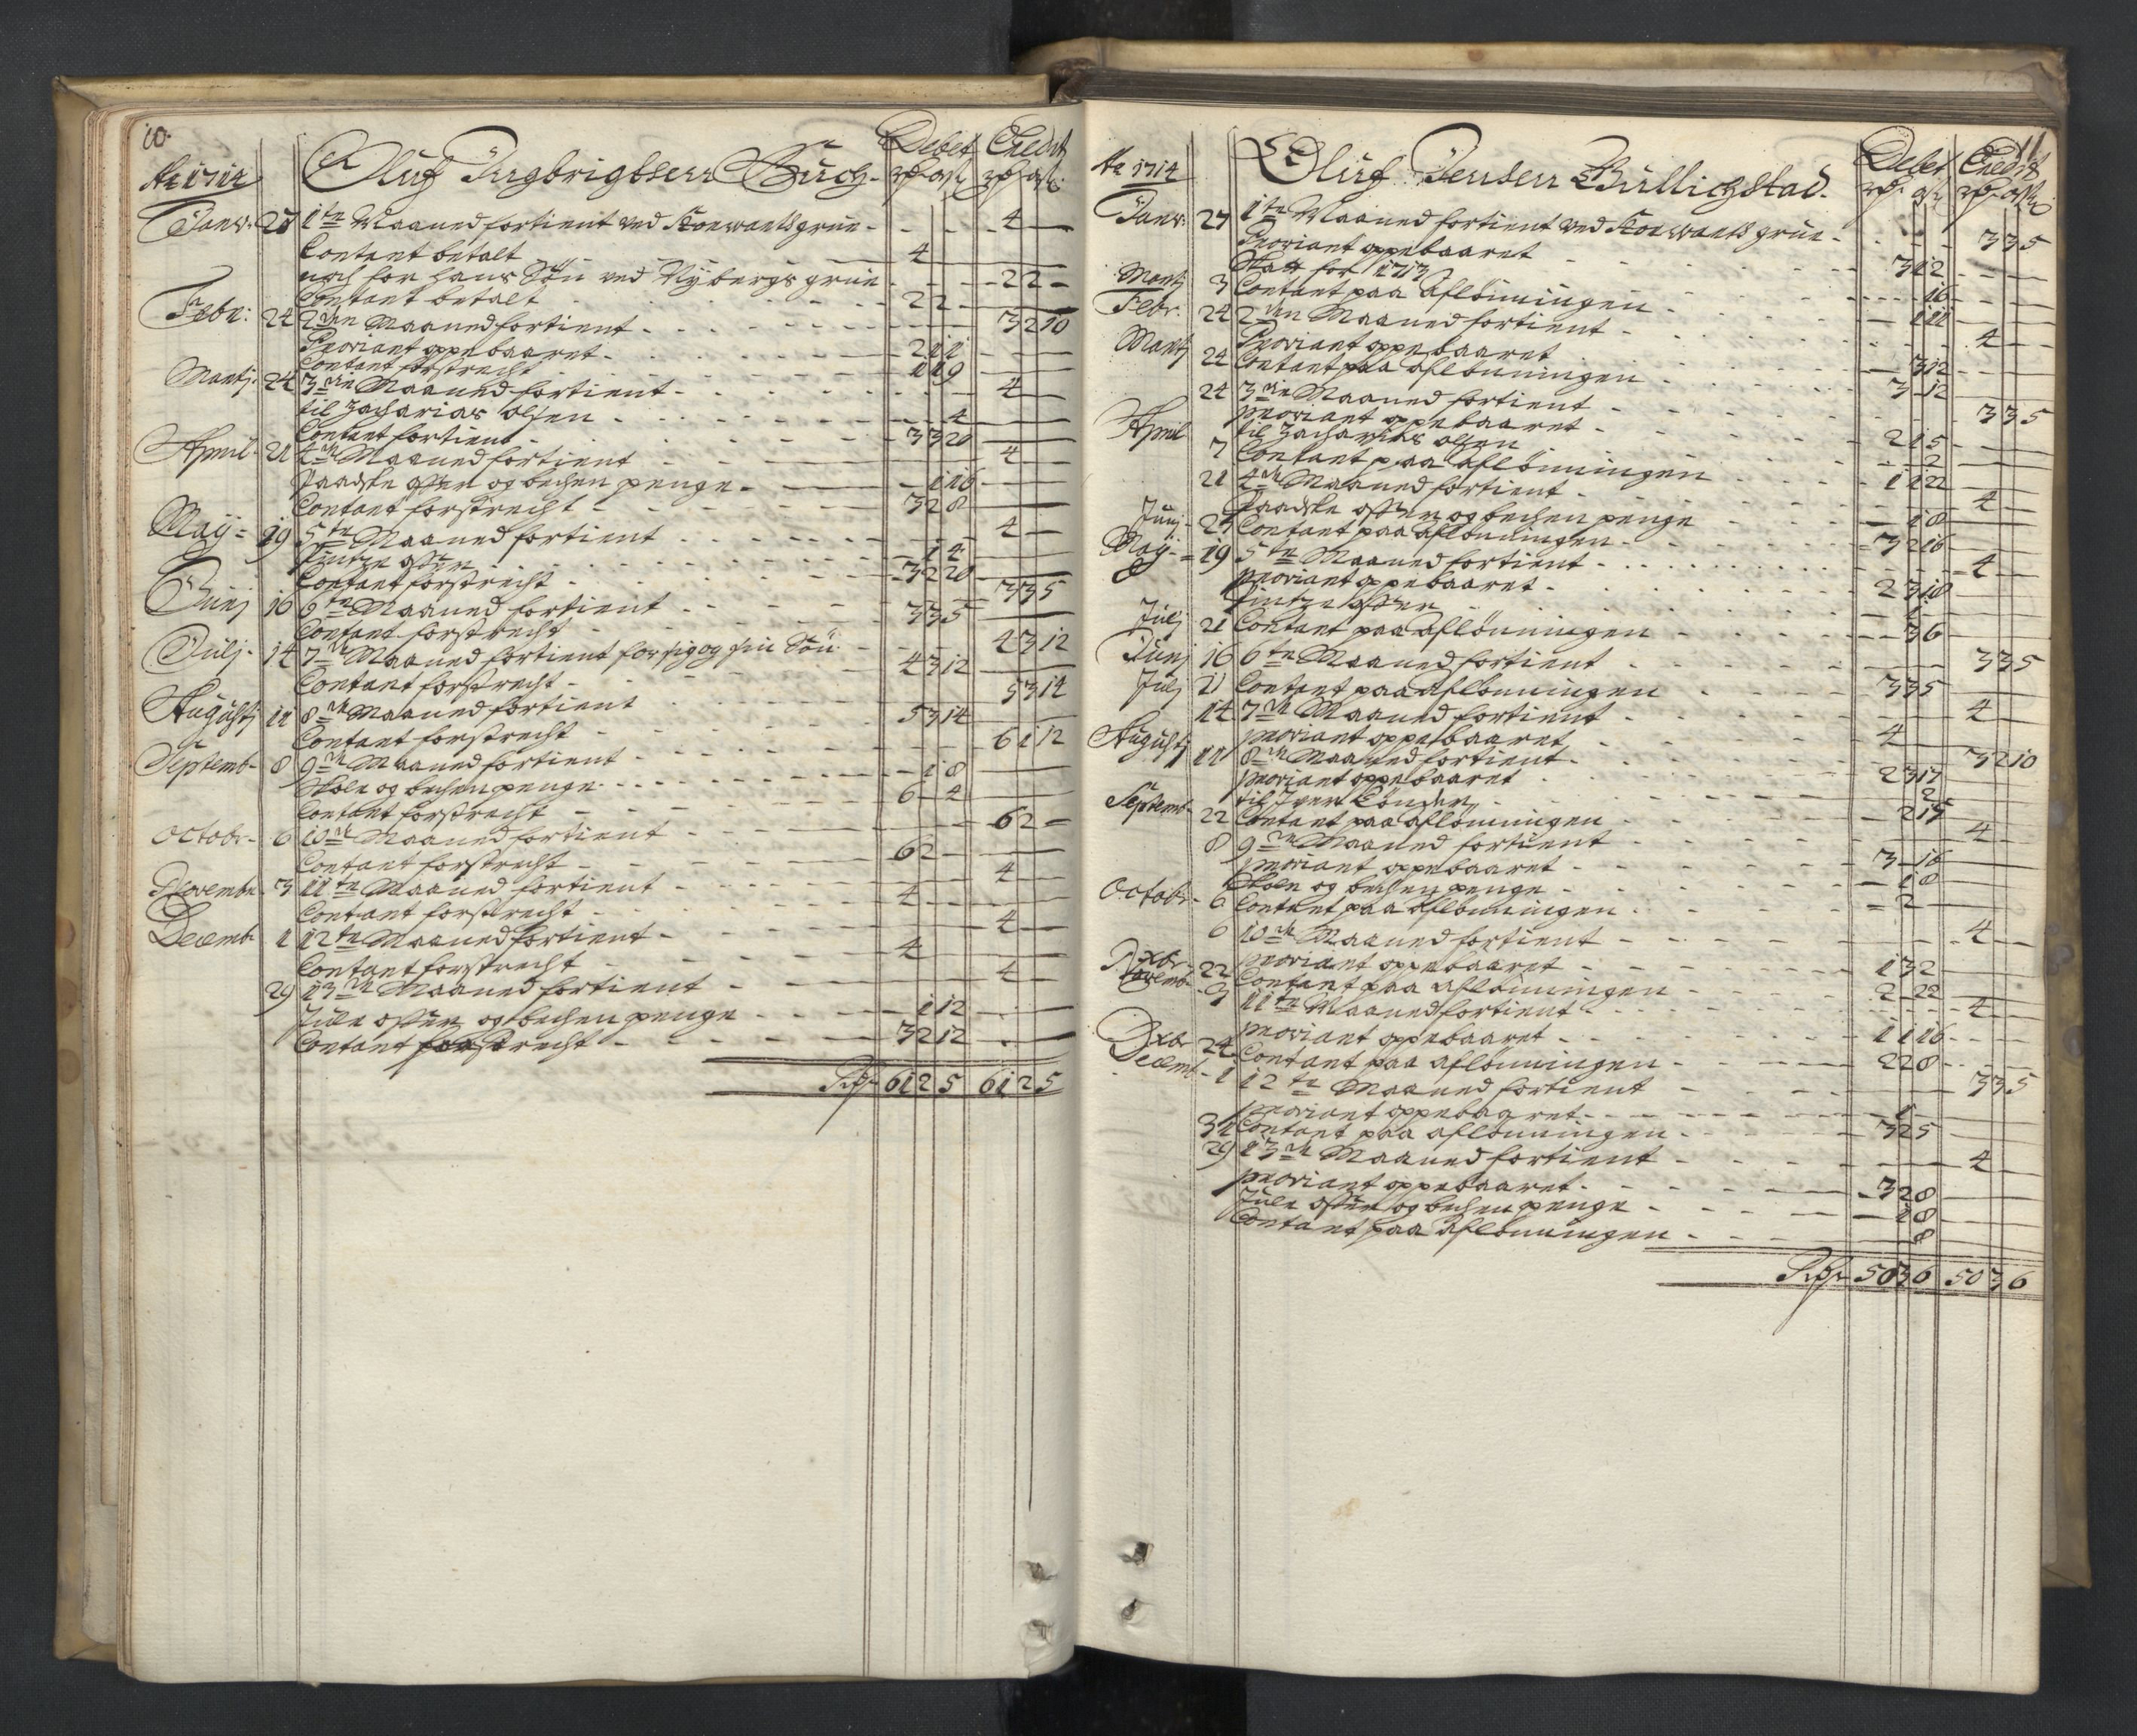 10.
Ao 1714 Oluf Ingbrigtsen Buch. Debet Credit
Janv: 27 1te Maaned fortient ved Kongens grue - 4 -
Contant betalt 4
noch for hans Søn ved Nybergs grue - 2 2 -
Contant betalt 2 2
Febr: 24 2den Maaned fortient 3 2 10
Proviant oppebaaret 2 1 1
Contant forstrecht 1 1 9
Martj: 24 3die Maaned fortient 4
til Zacharias Olsen 4
Contant fortient 3 3 20
April 21 4de Maaned fortient 4
Paaske offer og bechen penge 1 16
Contant forstrecht 3 2 8
Maij 19 5te Maaned fortient 4
Pintze offer 1 4
Contant forstrecht 3 2 20
Junj 16 6te Maaned fortient 3 3 5
Contant forstrecht 3 3 5
Julj 14 7de Maaned fortient for sig og sin Søn 4 3 12
Contant forstrecht 4 3 12
Augustj 11 8de Maaned fortient 5 3 14
Contant forstrecht 5 3 14
Septemb 8 9de Maaned fortient 6 1 12
Skole og bechen penge 1 8
Contant forstrecht 6 - 4
Octobr 6 10de Maaned fortient 6 2 -
Contant forstrecht 6 2
Novembr 3 11te Maaned fortient 4
Contant forstrecht 4
Decemb 1 12te Maaned fortient 4
Contant forstrecht 4
29 13de Maaned fortient 4
Jule offer og bechen penge 1 12
Contant forstrecht 3 2 12
61 2 5 61 2 5
11
Ao 1714 Oluf Jensen Bullichstad. Debet Credit
Janv: 27 1te Maaned fortient ved Kongens grue 3 3 5
Proviant oppebaaret 3 12
Skatt for 1713 16
Martj 3 Contant paa aflønningen 1 11
Febr. 24 2den Maaned fortient 4
Proviant oppebaaret 3 12
Martj 24 Contant paa aflønningen 3 12
24 3die Maaned fortient 3 3 5
proviant oppebaaret 2 1 5
til Zacharias olsen 2
April 7 Contant paa aflønningen 1 1 22
21 4de Maaned fortient 4
Paaske offer og bechen penge 1 8
Junj 2 Contant paa aflønningen 3 2 16
Maij 19 5te Maaned fortient 4
proviant oppebaaret 2 3 18
Pintze offer 1
Julj 21 Contant paa aflønningen 3 6
Junj 16 6te Maaned fortient 3 3 5
Julj 21 Contant paa aflønningen 3 3 5
14 7de Maaned fortient 4
proviant oppebaaret 4
Augustj 11 8de Maaned fortient 3 2 10
proviant oppebaaret 2 3 17
til Iver Tønder 2
Septemb 22 Contant paa aflønningen 2 17
8 9de Maaned fortient 4
proviant oppebaaret 3 - 16
Skole og bechen penge 1 8
Octobr 6 Contant paa aflønningen 2
6 10de Maaned fortient 4
proviant oppebaaret 1 3 2
Dxbr 22 Contant paa aflønningen 2 - 22
Novemb 3 11te Maaned fortient 4
proviant oppebaaret 1 1 16
Dxbr 24 Contant paa aflønningen 2 2 8
Decemb 1 12te Maaned fortient 3 3 5
proviant oppebaaret 1
31 Contant paa aflønningen 3 2 5
29 13de Maaned fortient 4
proviant oppebaaret 3 2 8
Jule offer og bechen penge 1 8
Contant paa aflønningen 8
50 3 6 50 3 6